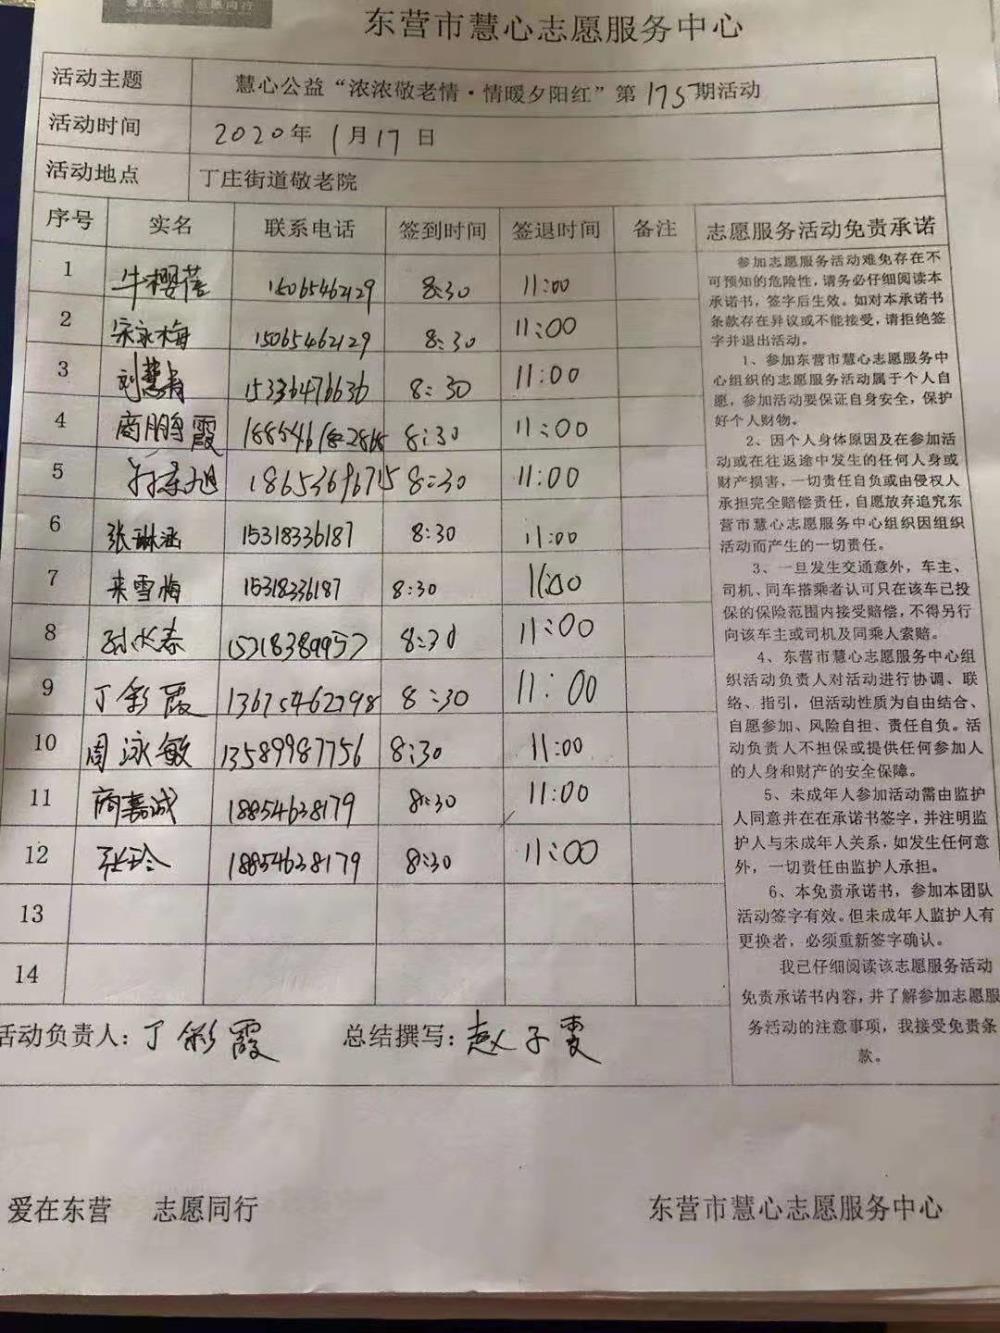 爱在东营 志愿同行
东营市慧心志愿服务中心
活动主题 慧心公益“浓浓敬老情·情暖夕阳红”第175期活动
活动时间 2020年1月17日
活动地点 丁庄街道敬老院
序号 实名 联系电话 签到时间 签退时间 备注 志愿服务活动免责承诺
1 牛樱蓓 15065462129 8:30 11:00
2 宋永梅 15065462129 8:30 11:00
3 15336476636 8:30 11:00
4 商鹏霞 8:30 11:00
5 18653696715 8:30 11:00
6 张琳涵 15318336187 8:30 11:00
7 来雪梅 15318336187 8:30 11:00
8 8:30 11:00
9 丁彩霞 8:30 11:00
10 周泳敏 13589987756 8:30 11:00
11 商嘉诚 18854638179 8:30 11:00
12 张玲 18854638179 8:30 11:00
13
14
参加志愿服务活动难免存在不
可预知的危险性，请务必仔细阅读本
承诺书，签字后生效。如对本承诺书
条款存在异议或不能接受，请拒绝签
字并退出活动。
1、参加东营市慧心志愿服务中
心组织的志愿服务活动属于个人自
愿，参加活动要保证自身安全，保护
好个人财物。
2、因个人身体原因及在参加活
动或在往返途中发生的任何人身或
财产损害，一切责任自负或由侵权人
承担完全赔偿责任，自愿放弃追究东
营市慧心志愿服务中心组织因组织
活动而产生的一切责任。
3、一旦发生交通意外，车主、
司机、同车搭乘者认可只在该车已投
保的保险范围内接受赔偿，不得另行
向该车主或司机及同乘人索赔。
4、东营市慧心志愿服务中心组
织活动负责人对活动进行协调、联
络、指引，但活动性质为自由结合、
自愿参加、风险自担、责任自负。活
动负责人不担保或提供任何参加人
的人身和财产的安全保障。
5、未成年人参加活动需由监护
人同意并在在承诺书签字，并注明监
护人与未成年人关系，如发生任何意
外，一切责任由监护人承担。
6、本免责承诺书，参加本团队
活动签字有效。但未成年人监护人有
更换者，必须重新签字确认。
我已仔细阅读该志愿服务活动
免责承诺书内容，并了解参加志愿服
务活动的注意事项，我接受免责条
款。
活动负责人：丁彩霞 总结撰写：赵子雯
爱在东营 志愿同行 东营市慧心志愿服务中心